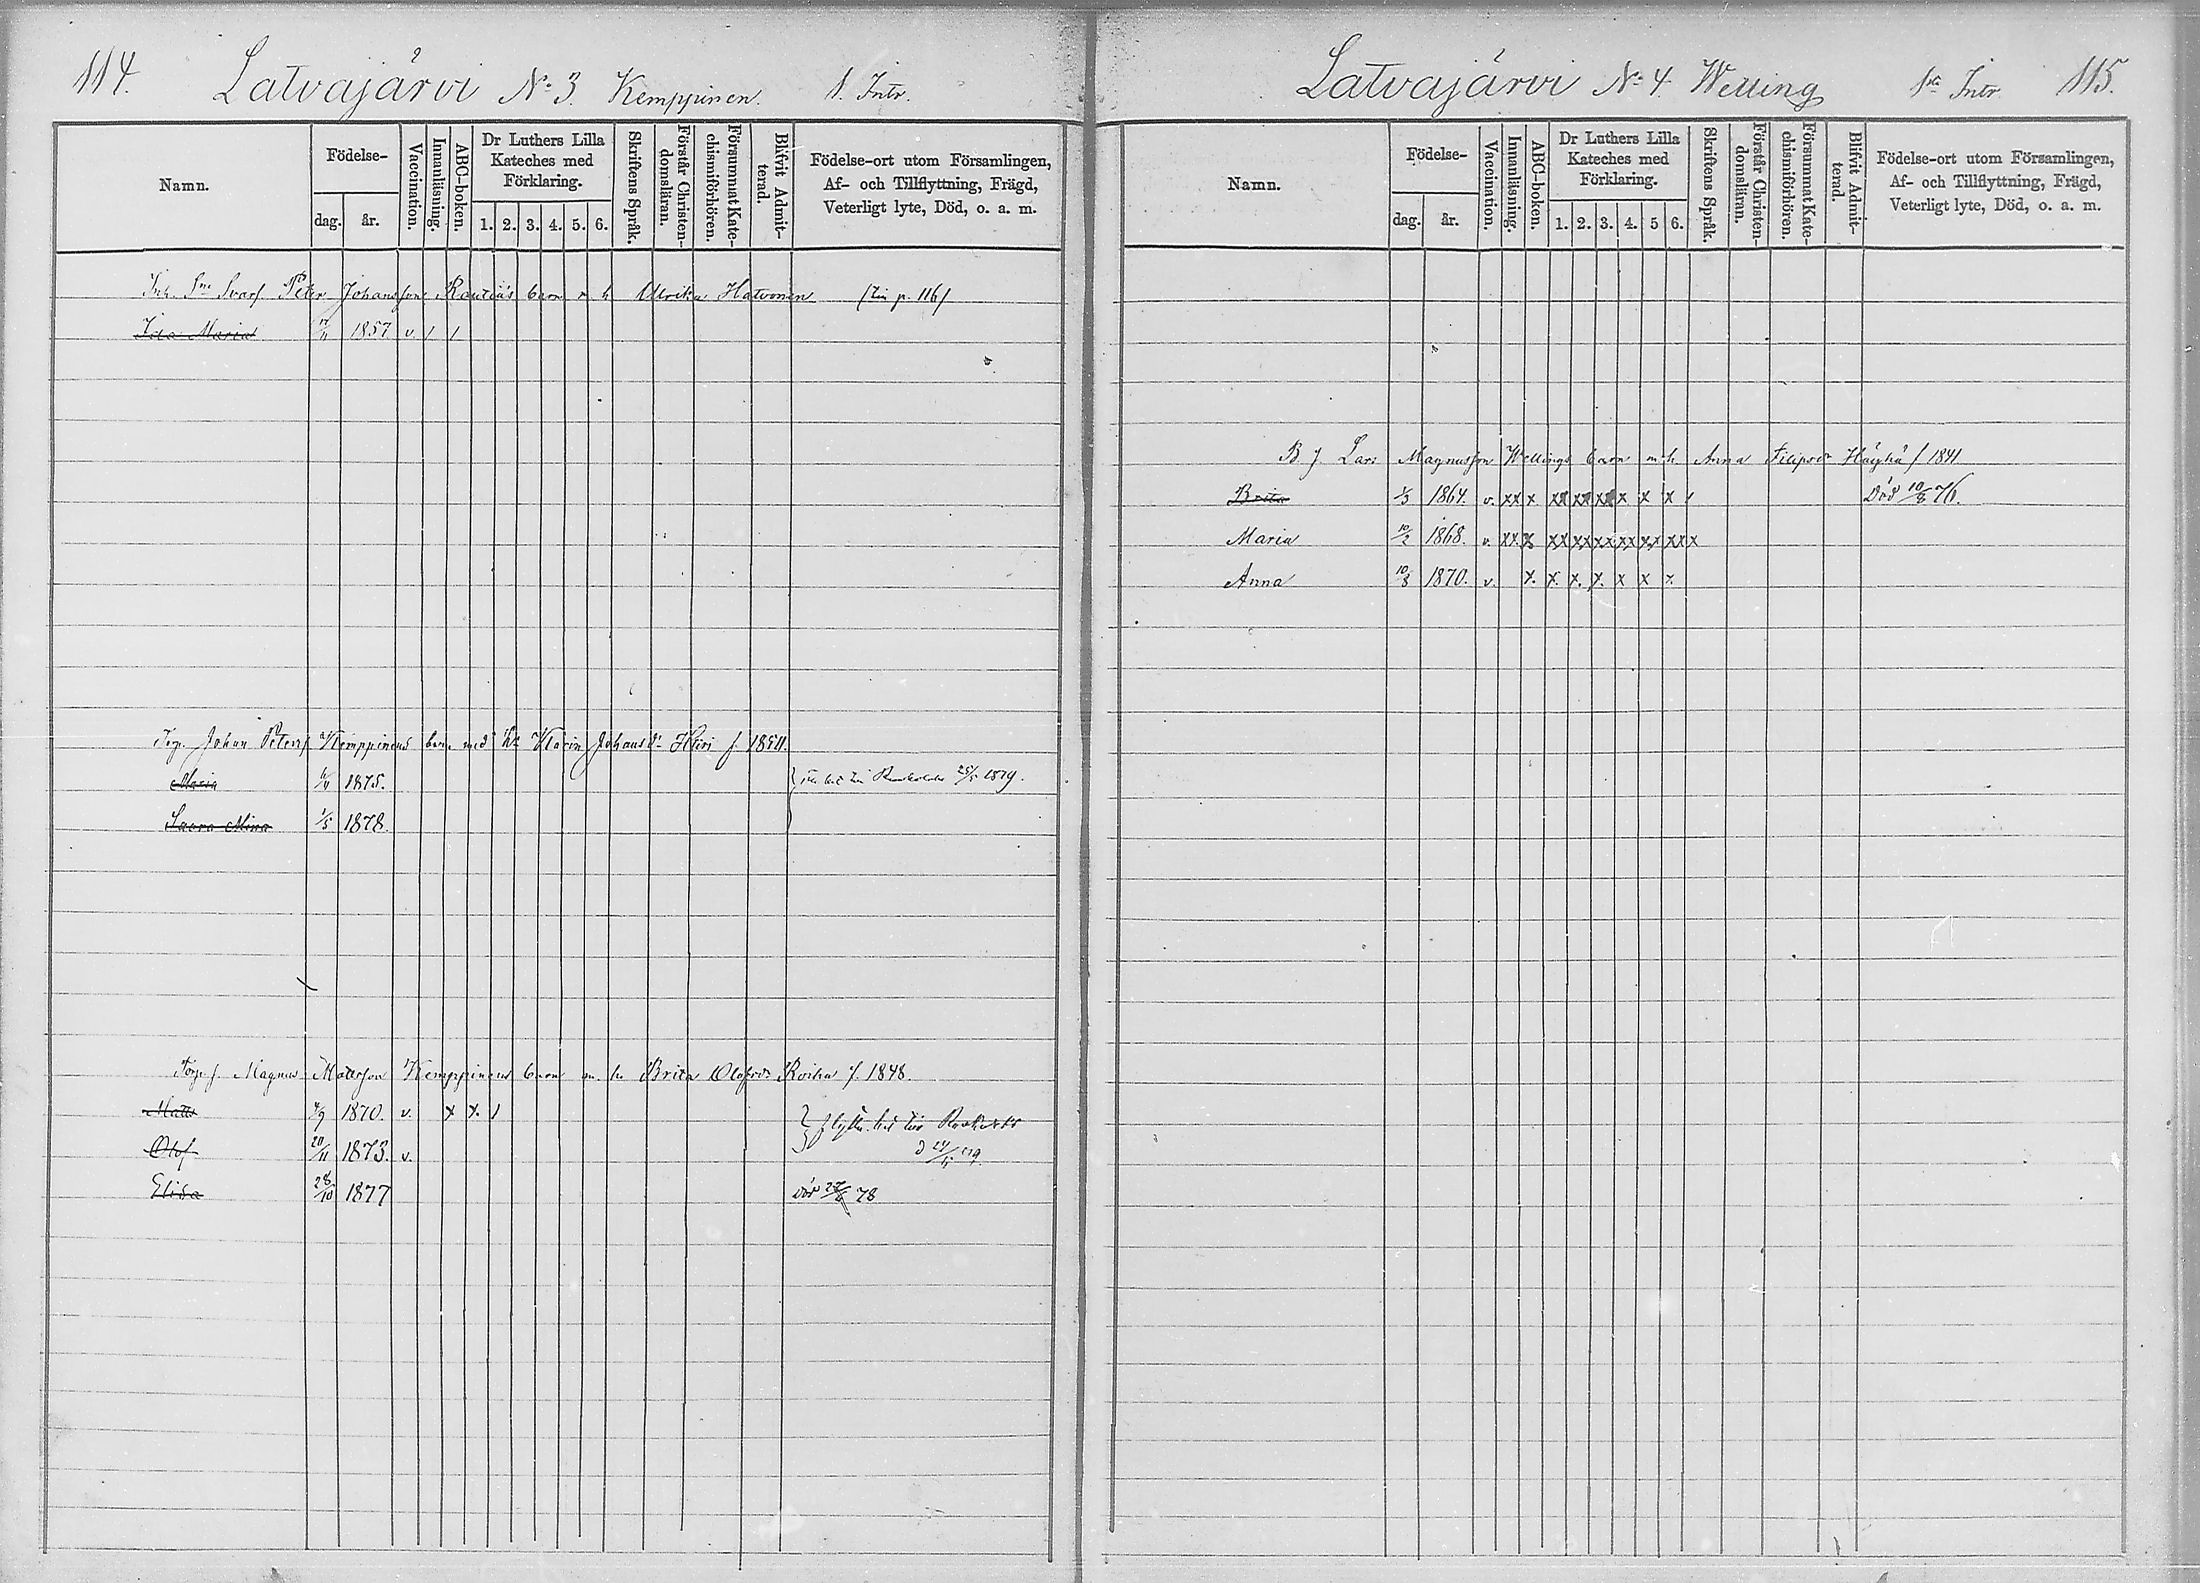 114. Latvajärvi No 3. Kemppinen. 1. Intr.
Namn.
Födelse-
dag. år.
Vaccination.
Innanläsning.
ABC-boken.
Dr Luthers Lilla
Kateches med
Förklaring.
1. 2. 3. 4. 5. 6.
Skriftens Språk.
Förstår Christen-
domsläran.
Försummat Kate-
chismiförhören.
Blifvit Admit-
terad.
Födelse-ort utom Församlingen,
Af- och Tillflyttning, Frägd,
Veterligt lyte, Död, o. a. m.
Inh. Peter Johansson barn m. h. Ulrika Hatvonen (Till p. 116)
Ida Maria 1857 v. / /
Johan Peterss Kemppinens barn med Karin Johansdr
Maria 1875. 1879.
Saara Mina 1/5 1878.
Magnus Matsson Kemppinens barn m. h. Brita Olofsdr Roiha f. 1848.
Matts 4/9 1870. v. x x. 1
Olof 20/11 1873. v.
Elisa 28/10 1877 död 78
Latvajärvi No 4. Welling 1sta Intr. 115.
Namn.
Födelse-
dag. år.
Vaccination.
Innanläsning.
ABC-boken.
Dr Luthers Lilla
Kateches med
Förklaring.
1. 2. 3. 4. 5 6.
Skriftens Språk.
Förstår Christen-
domsläran.
Försummat Kate-
chismiförhören.
Blifvit Admit-
terad.
Födelse-ort utom Församlingen,
Af- och Tillflyttning, Frägd,
Veterligt lyte, Död, o. a. m.
B. f. Lars Magnusson Wellings barn m. h. Anna Filipsdr Häyhä f 1841
Brita 1/3 1864. v. xx x. xx xx xx x x x / Död 10/8 76.
Maria 10/2 1868. v. xx x xx xx xx xx xx xx x
Anna 10/8 1870. v. x. x. x. x. x x x.